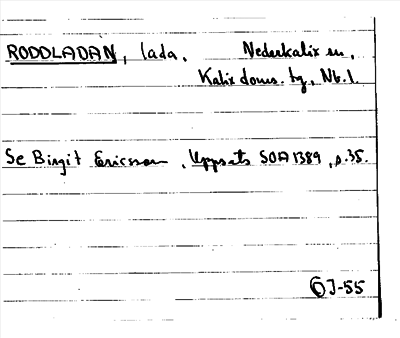 RODDLADAN, lada. Nederkalix sn,
Kalix doms. tg, Nb. l.
Se Birgit Ericsson, Uppsats SOA 1389, s. 35.
ÖJ-55